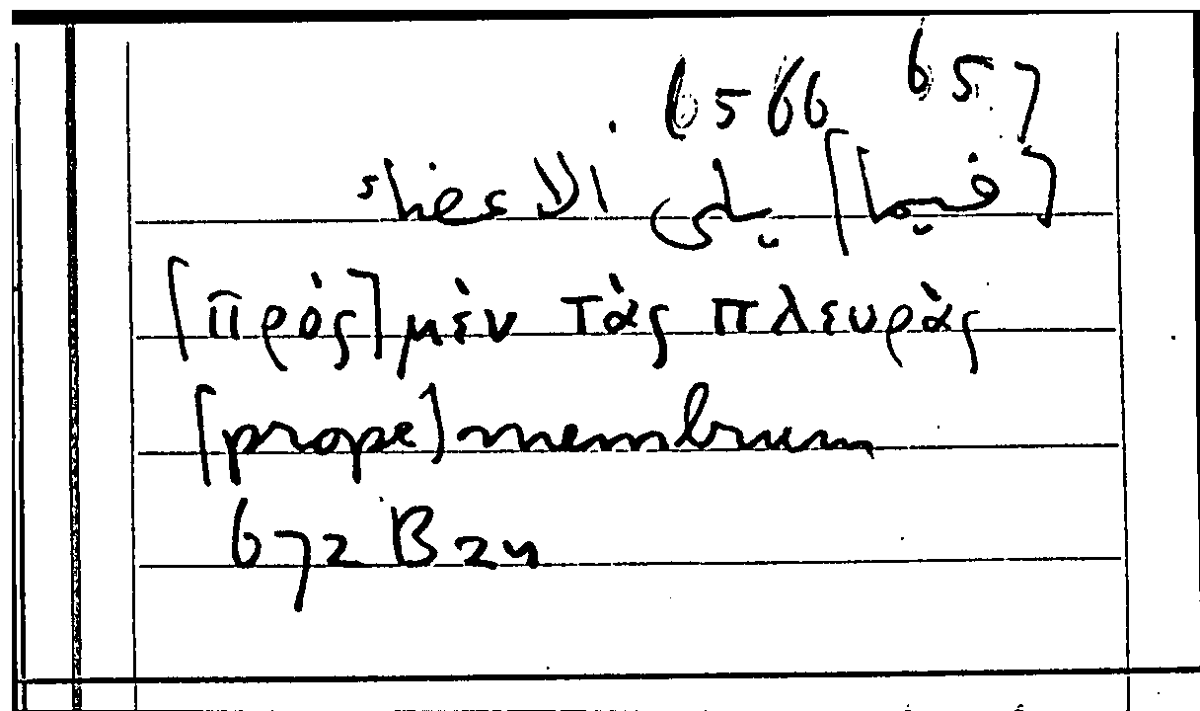 657
6566
[فيما] يلى الاعضاء
[πρὸς] μὲν τὰς πλευρὰς
[prope] membrum
672 B 24